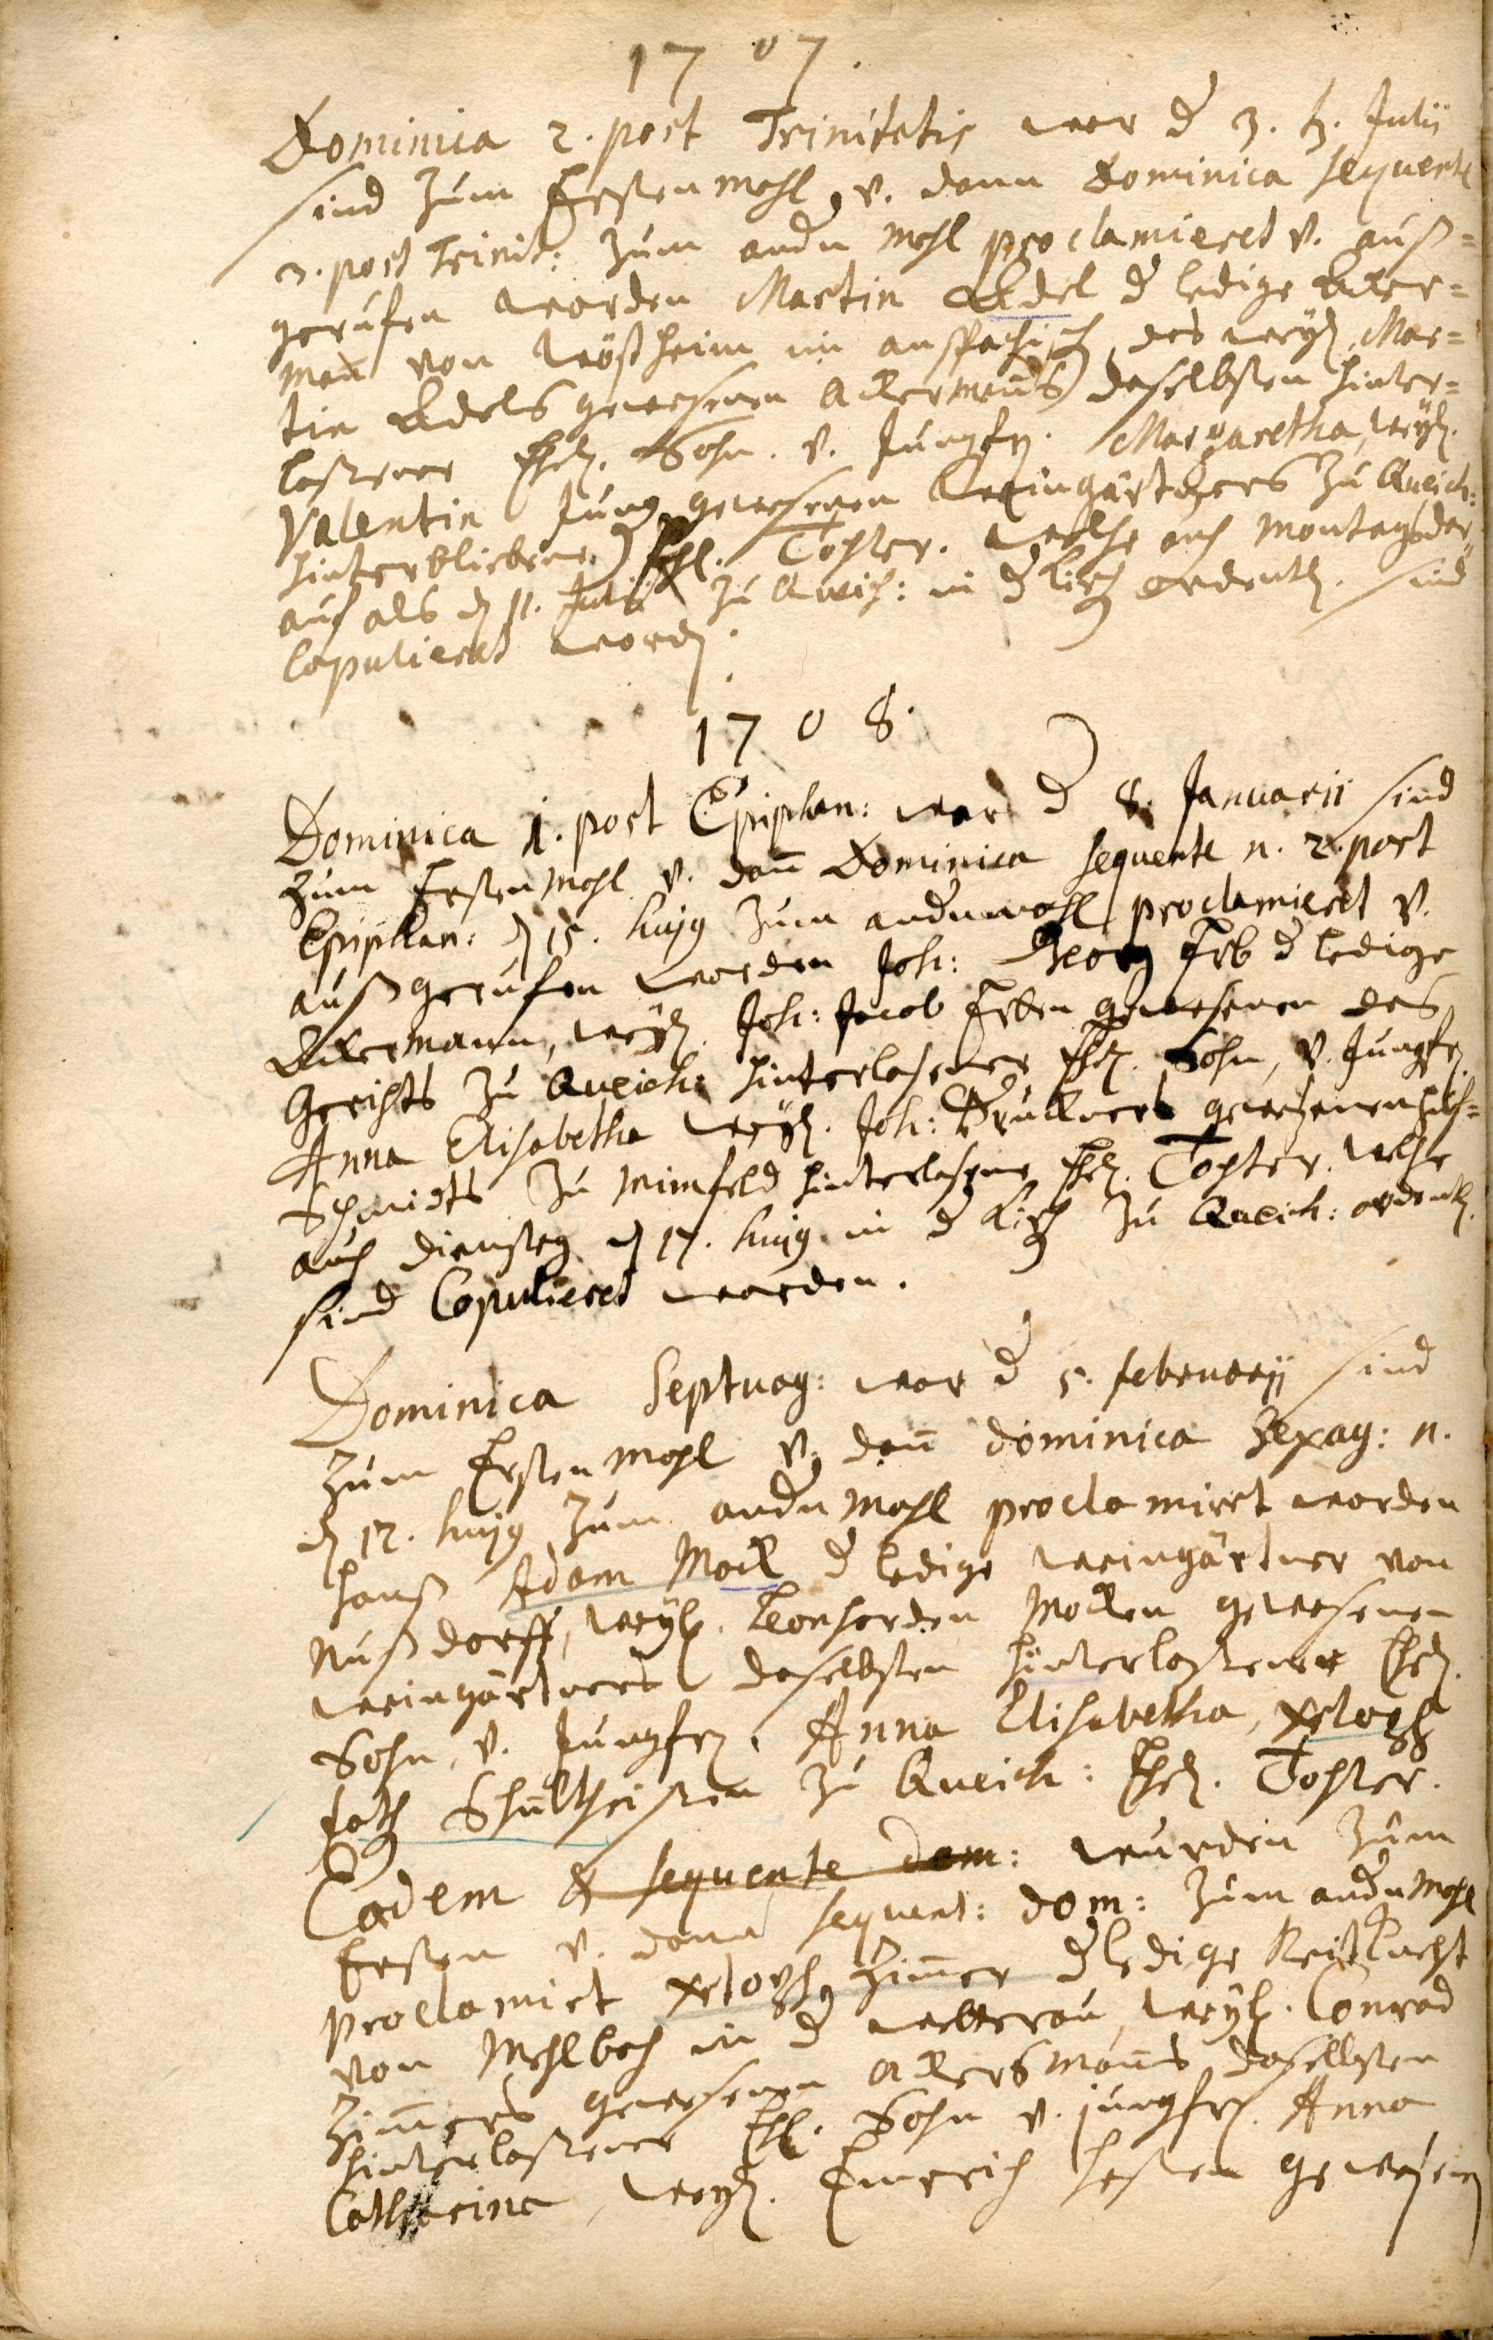 1707.
Dominica 2. post Trinitatis war d 3. Julii
sind zum Ersten mahl, v. dann Dominica sequente
3. post Trinit: zum andn mahl proclamieret v. auß=
gerufen worden Martin Edel d ledige Acker=
man von im anspachisch, des weyl. Mar=
tin Edels gewesenen Ackermans daselbsten hinter=
laßener Ehel. Sohn. v. Jungfr. Margaretha, weyl.
Valentin Jung gewesenen Weingärtners zu Queich:
hinterbliebene Ehl. Tochter. welche auch Montags dar
auf als d 11. Julii zu Queich: in d Kirch ordentl. sind
copulieret word.
1708.
Dominica 1. post Epiphan: war d 8. Januarii sind
zum Ersten mahl v. dan Dominica sequente n. 2. post
Epiphan: d 15. hujg zum andn mahl proclamieret v.
außgerufen worden Joh: Georg Erb d ledige
Ackermann, weyl. Joh: Jacob Erben gewesenen des
Gerichts zu Queich: hinterlaßener Ehel. Sohn, v. Jungfr.
Anna Elisabetha weyl. Joh: Bruckners gewesenen huf=
Schmidts zu Minfeld hinterlaßene Ehel. Tochter. welche
auch Dienstag d 17. hujg in d Kirch zu Queich: ordentl.
sind Copulieret worden.
Dominica Septuag: war d 5. februarii sind
zum Ersten mahl v. dan dominica Sexag: n.
d 12. hujg zum andn mahl proclamirt worden
Hanß Adam Mock d ledige Weingärtner von
Nußdorff, weyl. Leonharden Mocken gewesenen
Weingärtners daselbsten hinterlaßener Ehel.
Sohn, v. Jungfr. Anna Elisabetha, xstoph
fath Schultheißen zu Queich: Ehel. Tochter.
Eadem & sequente dom: wurden zum
Ersten v. dann sequent: dom: zum andn mahl
proclamirt xstoph Zimer d ledige Reitknecht
von Mehlbach in d wetterau, weyl. Conrad
Zimers gewesenen Ackersmans daselbsten
hinterlaßener Ehl. Sohn v. jungfr. Anna
Catharina, weyl. Emerich gewesen